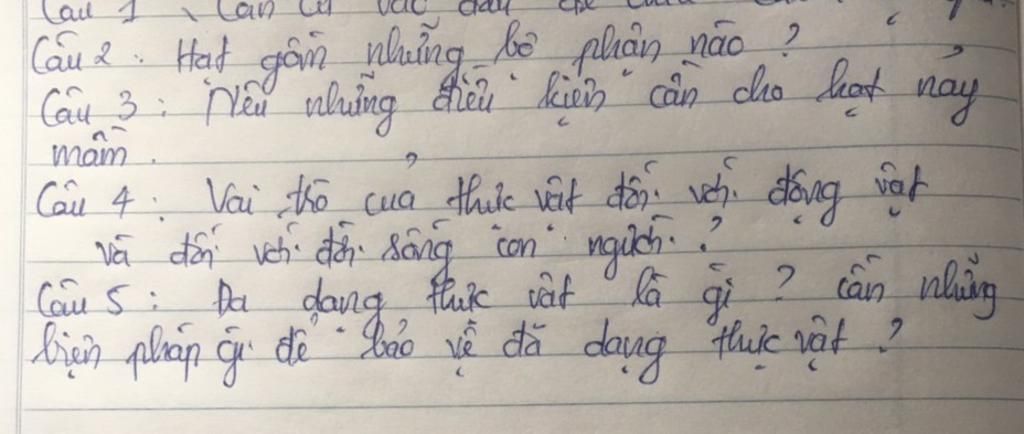 Câu 1
Câu 2 : Hạt gồm những bộ phận nào ?
Câu 3 : Nêu những điều kiện cần cho hạt nảy
mầm .
Câu 4 : Vai trò của thực vật đối với động vật
và đối với đời sống con người ?
Câu 5 : Đa dạng thực vật là gì ? Cần những
biện pháp gì để bảo vệ đa dạng thực vật ?